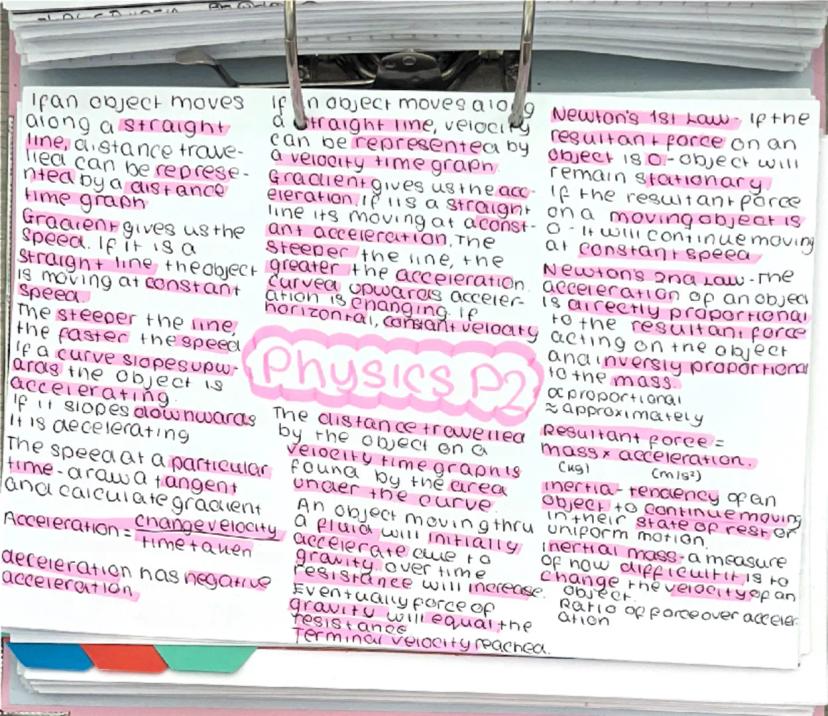 If an object moves
along a straight
line, distance trave-
lled can be represe-
nted by a distance
time graph
Gradient gives us the
speed. If it is a
straight line, the object
is moving at constant
speed.
The steeper the line,
the faster the speed
If a curve slopes upw-
ards the object is
accelerating.
If it slopes downwards
it is decelerating
The speed at a particular
time - draw a tangent
and calculate gradient
Acceleration = change velocity
time taken
deceleration has negative
acceleration
If an object moves along
a straight line, velocity
can be represented by
a velocity time graph.
Gradient gives us the acc-
eleration. If it is a straight
line its moving at a const-
ant acceleration. The
steeper the line, the
greater the acceleration.
curved upwards acceler-
ation is changing. If
horizontal, constant velocity
Physics P2
The distance travelled
by the object on a
velocity time graph is
found by the area
under the curve.
An object moving thru
a fluid will initially
accelerate due to
gravity, over time
resistance will increase.
Eventually force of
gravity will equal the
resistance
Terminal velocity reached.
Newton's 1st Law - If the
resultant force on an
object is 0 - object will
remain stationary
If the resultant force
on a moving object is
0 - it will continue moving
at constant speed
Newton's 2nd Law - The
acceleration of an object
is directly proportional
to the resultant force
acting on the object
and inversly proportional
to the mass.
∝ proportional
≈ approximately
Resultant force =
mass × acceleration.
(kg) (m/s²)
inertia - tendency of an
object to continue moving
in their state of rest or
uniform motion.
inertial mass - a measure
of how difficult it is to
change the velocity of an
object.
Ratio of force over acceler-
ation